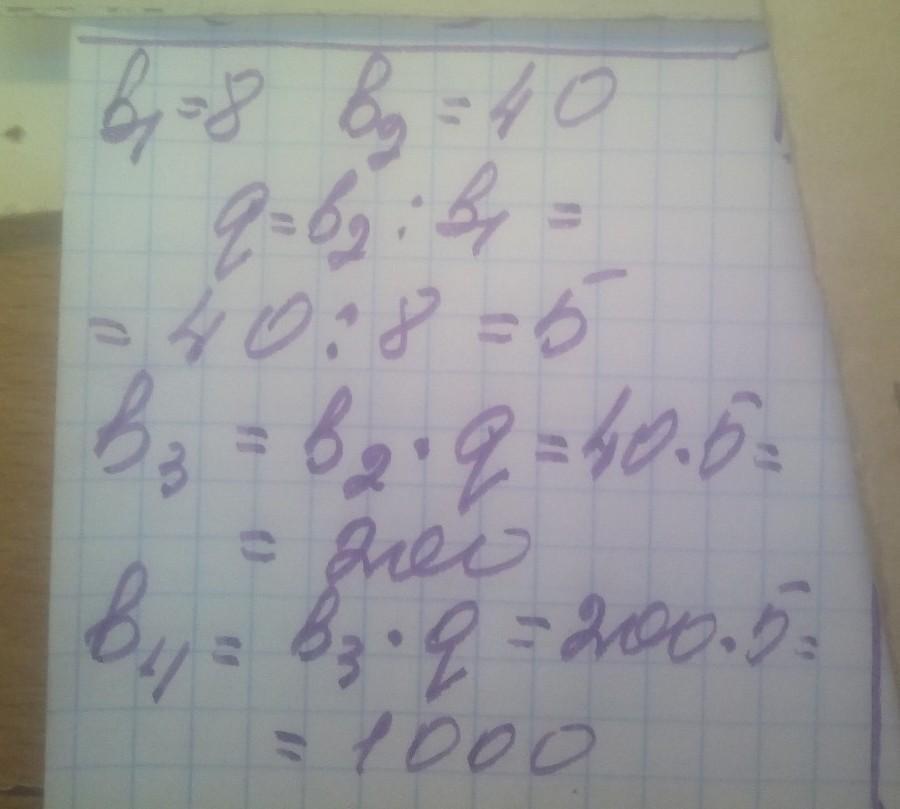 b₁=8 b₂=40
q=b₂:b₁=
=40:8=5
b₃=b₂·q=40·5=
=200
b₄=b₃·q=200·5=
=1000